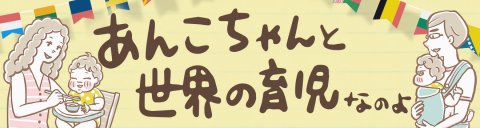 あんこちゃんと
世界の育児なのよ